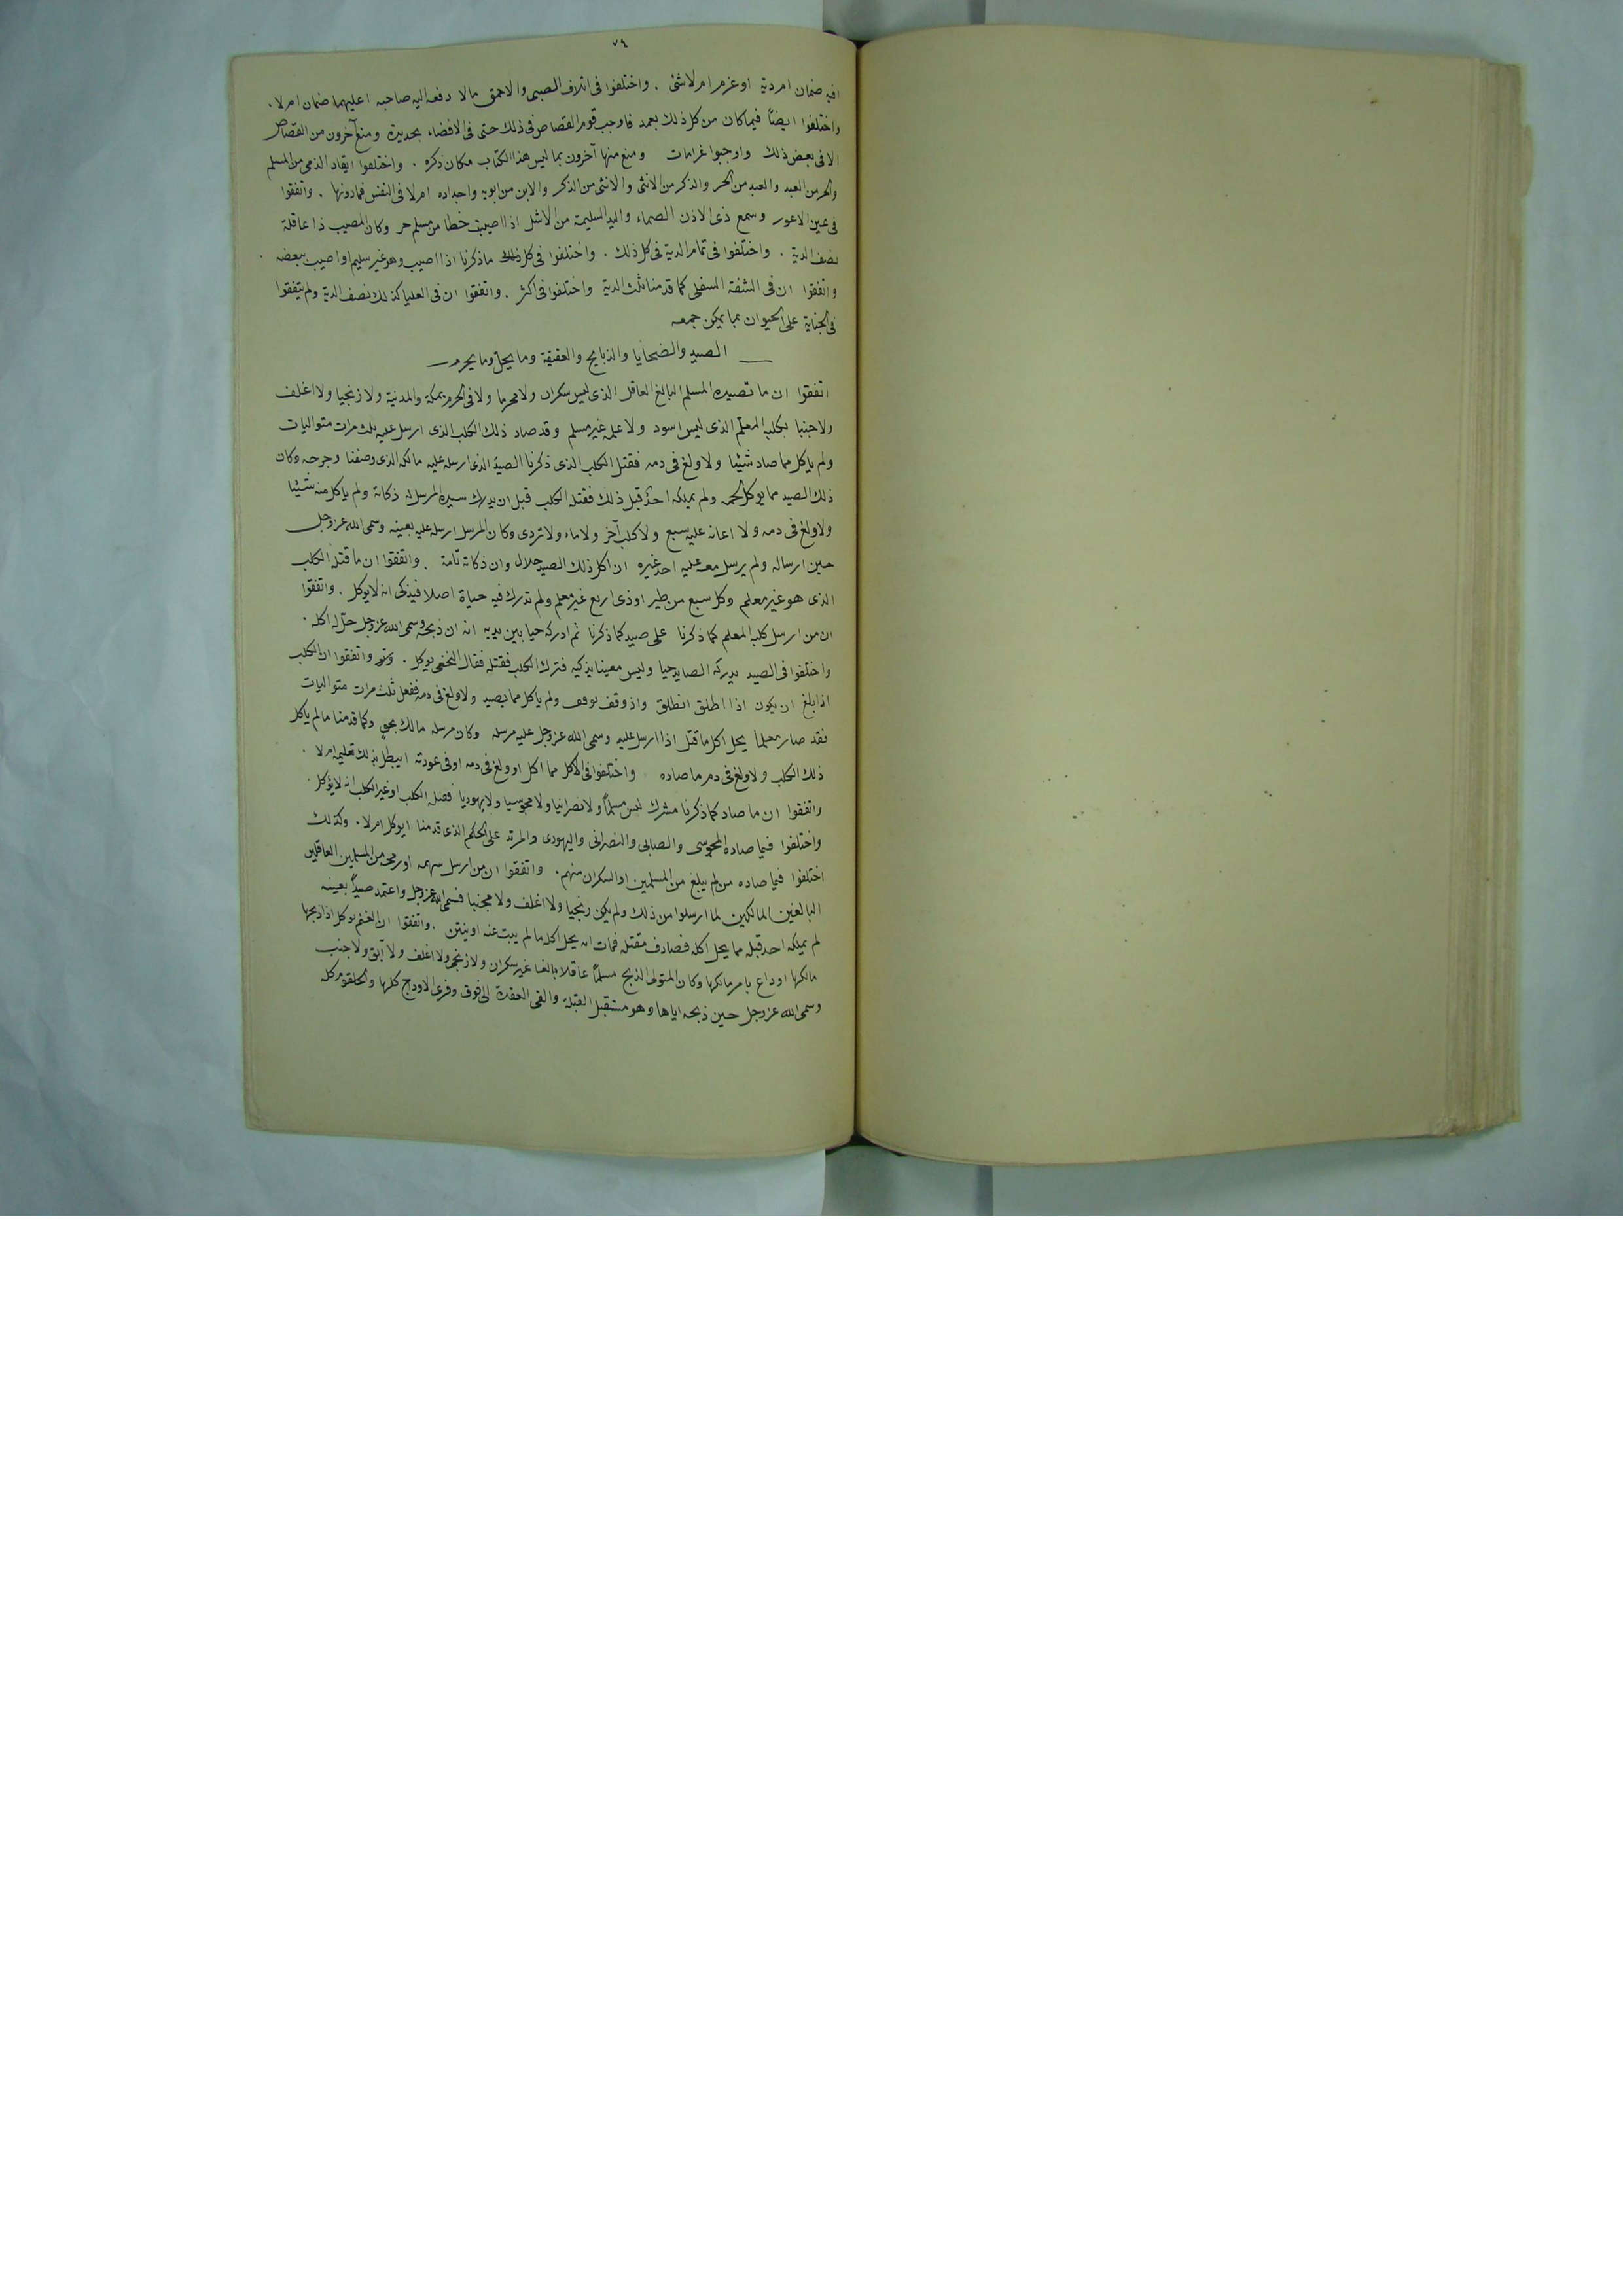 ٧٤
افيه ضمان ام دية او غرم ام لا شئ . واختلفوا فى اتلاف الصبى والاحمق مالا دفعه اليه صاحبه اعليهما ضمان ام لا .
واختلفوا ايضاً فيما كان من كل ذلك بعمد فاوجب قوم القصاص فى ذلك حتى فى الافضاء بحديدة ومنع آخرون من القصاص
الا فى بعض ذلك واوجبوا غرامات ومنع منها آخرون بما ليس هذا الكتاب مكان ذكره . واختلفوا ايقاد الذمى من المسلم
والحر من العبد والعبد من الحر والذكر من الانثى والانثى من الذكر والابن من ابويه واجداده ام لا فى النفس فما دونها . واتفقوا
فى عين الاعور وسمع ذى الاذن الصماء واليد السليمة من الاشل اذا اصيبت خطا من مسلم حر وكان المصيب ذا عاقلة
نصف الدية . واختلفوا فى تمام الدية فى كل ذلك . واختلفوا فى كل ذلك ماذكرنا اذا اصيب وهو غير سليم او اصيب ببعضه .
واتفقوا ان فى الشفة السفلى كما قدمنا ثلث الدية واختلفوا فى اكثر . واتفقوا ان فى العليا كذلك نصف الدية ولم يتفقوا
فى الجناية على الحيوان بما يمكن جمعه
الصيد والضحايا والذبايح والعقيقة وما يحل وما يحرم
اتفقوا ان ما تصيده المسلم البالغ العاقل الذى ليس سكران ولا محرما ولا فى الحرم بمكة والمدنية ولا زنجيا ولا اغلف
ولا جنبا بكلبه المعلم الذى ليس اسود ولا علمه غير مسلم وقد صاد ذلك الكلب الذى ارسل عليه ثلث مرات متواليات
ولم ياكل مما صاد شيئا ولا ولغ فى دمه فقتل الكلب الذى ذكرنا الصيد الذى ارسله عليه مالكه الذى وصفنا وجرحه وكان
ذلك الصيد مما يوكل لحمه ولم يملكه احد قبل ذلك فقتله الكلب قبل ان يدرك سيده المرسل له ذكاته ولم ياكل منه شيئا
ولا ولغ فى دمه ولا اعانه عليه سبع ولا كلب آخر ولا ماء ولا تردى وكان المرسل ارسله عليه بعينه وسمى الله عز وجل
حين ارساله ولم يرسل معه عليه احد غيره ان اكل ذلك الصيد حلال وان ذكاته تامة . واتفقوا ان ما قتله الكلب
الذى هو غير معلم وكل سبع من طير او ذى اربع غير معلم ولم تدرك فيه حياة اصلا فيذكى انه لا يوكل . واتفقوا
ان من ارسل كلبه المعلم كما ذكرنا على صيد كما ذكرنا ثم ادركه حيا بين يديه انه ان ذبحه وسمى الله عز وجل حل له اكله .
واختلفوا فى الصيد يدركه الصايد حيا وليس معينا يذكيه فترك الكلب فقتله فقال النخعى يوكل . واتفقوا ان الكلب
اذا بلغ ان يكون اذا اطلق انطلق واذ وقف توقف ولم ياكل مما يصيد ولا ولغ فى دمه ففعل ثلث مرات متواليات
فقد صار معلما يحل اكل ما قتل اذا ارسل عليه وسمى الله عز وجل عليه مرسله وكان مرسله مالك بحق وكما قدمنا ما لم ياكل
ذلك الكلب ولا ولغ فى دم ما صاده واختلفوا فى الأكل مما اكل او ولغ فى دمه او فى عودته ايبطل بذلك تعليمه ام لا .
واتفقوا ان ما صاد كما ذكرنا مشرك ليس مسلماً ولا نصرانيا ولا مجوسيا ولا يهوديا فصله الكلب او غير الكلب انه لا يؤكل .
واختلفوا فيما صاده المجوسى والصابى والنصرانى واليهودى والمرتد على الحكم الذى قدمنا ايوكل ام لا . وكذلك
اختلفوا فيما صاده من لم يبلغ من المسلمين او السكران منهم . واتفقوا ان من ارسل سهمه او رمحه من المسلمين العاقلين
البالغين المالكين لما ارسلوا من ذلك ولم يكن زنجيا ولا اغلف ولا مجنبا فسمى الله عز وجل واعتمد صيداً بعينه
لم يملكه احد قبله مما يحل اكله فصادف مقتله فمات انه يحل اكله ما لم يبت عنه او ينتن . واتفقوا ان الغنم يوكل اذا ذبحها
مالكها او داع بامر مالكها وكان المتولى الذبح مسلماً عاقلا بالغا غير سكران ولا زنجى ولا اغلف ولا آبق ولا جنب
وسمى الله عز وجل حين ذبحه اياها وهو مستقبل القبلة والقى العقدة الى فوق وفرى الاوداج كلها والحلقوم كله